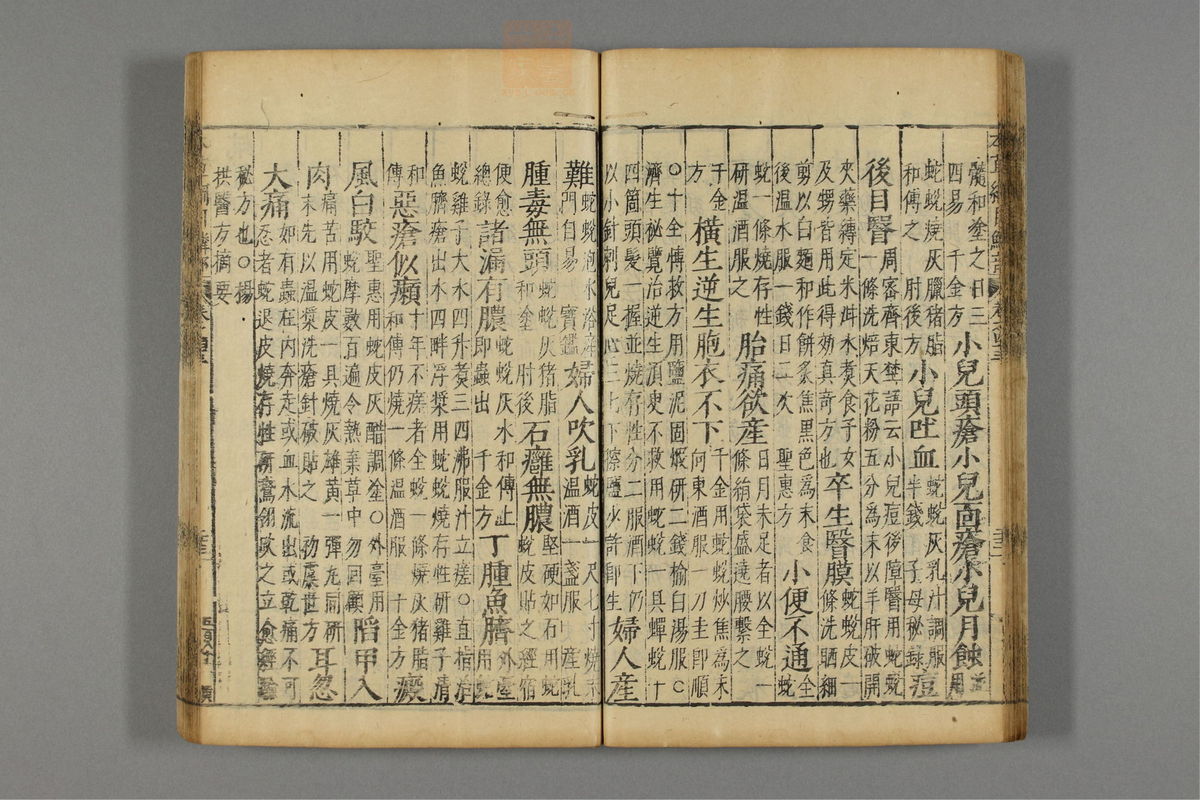 髓和塗之日三
四易 千金方
小兒頭瘡小兒面瘡小兒月蝕
並
用
蛇蛻燒灰臘猪脂
和傅之 肘後方
小兒吐血
蛇蛻灰乳汁調服
半錢 子母秘録
痘
後目瞖
周密齊東埜語云小兒痘後障瞖用蛇蛻
一條洗焙天花粉五分為末以羊肝破開
夾藥縛定米泔水煮食予女
及甥皆用此得効真奇方也
卒生瞖膜
蛇蛻皮一
條洗晒細
剪以白麵和作餅炙焦黑色為末食
後温水服一錢日二次 聖惠方
小便不通
全蛇
蛻一條燒存性
研温酒服之
胎痛欲産
日月未足者以全蛻一
條絹袋盛遶腰繫之
千金
方
橫生逆生胞衣不下
千金用蛇蛻炒焦為末
向東酒服一刀圭即順
〇十全博救方用鹽泥固煅研二錢榆白湯服〇
濟生秘覽治逆生須臾不救用蛇蛻一具蟬蛻十
四箇頭髮一握並燒存性分二服酒下仍
以小針刺兒足心三七下擦鹽少許即生
婦人産
難
蛇蛻泡水浴産
門自易 寶鑑
婦人吹乳
蛇皮一尺七寸燒末
温酒一盞服 産乳
腫毒無頭
蛇蛻灰猪脂
和塗 肘後
石癰無膿
堅硬如石用蛇
蛻皮貼之經宿
便愈
總録
諸漏有膿
蛇蛻灰水和傅上
即蟲出 千金方
丁腫魚臍
外臺
用蛇
蛻雞子大水四升煮三四沸服汁立瘥〇直指治
魚臍瘡出水四畔浮漿用蛇蛻燒存性研雞子清
和
傅
惡瘡似癩
十年不瘥者全蛻一條燒灰猪脂
和傅仍燒一條温酒服 千金方
癜
風白駮
聖惠用蛇皮灰醋調塗〇外臺用
蛇摩數百遍令熱棄草中勿回顧
陷甲入
肉
痛苦用蛇皮一具燒灰雄黃一彈丸同研
末先以温漿洗瘡針破貼之 初虞世方
耳忽
大痛
如有蟲在内奔走或血水流出或乾痛不可
忍者蛇退皮燒存性研鵞翎吹之立愈經驗
秘方也〇楊
拱醫方摘要